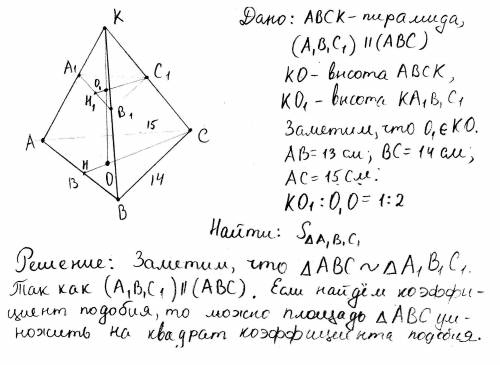 K
Дано: ABCK - пирамида,
(A₁B₁C₁) || (ABC)
KO - высота ABCK,
KO₁ - высота KA₁B₁C₁
Заметим, что O₁ ∈ KO.
AB = 13 см; BC = 14 см;
AC = 15 см.
KO₁ : O₁O = 1:2
A₁
C₁
O₁
H₁
B₁
A
15
C
H
13
O
14
B
Найти: S△A₁B₁C₁
Решение: Заметим, что △ABC ~ △A₁B₁C₁.
Так как (A₁B₁C₁) || (ABC). Если найдём коэффи-
циент подобия, то можно площадь △ABC ум-
ножить на квадрат коэффициента подобия.